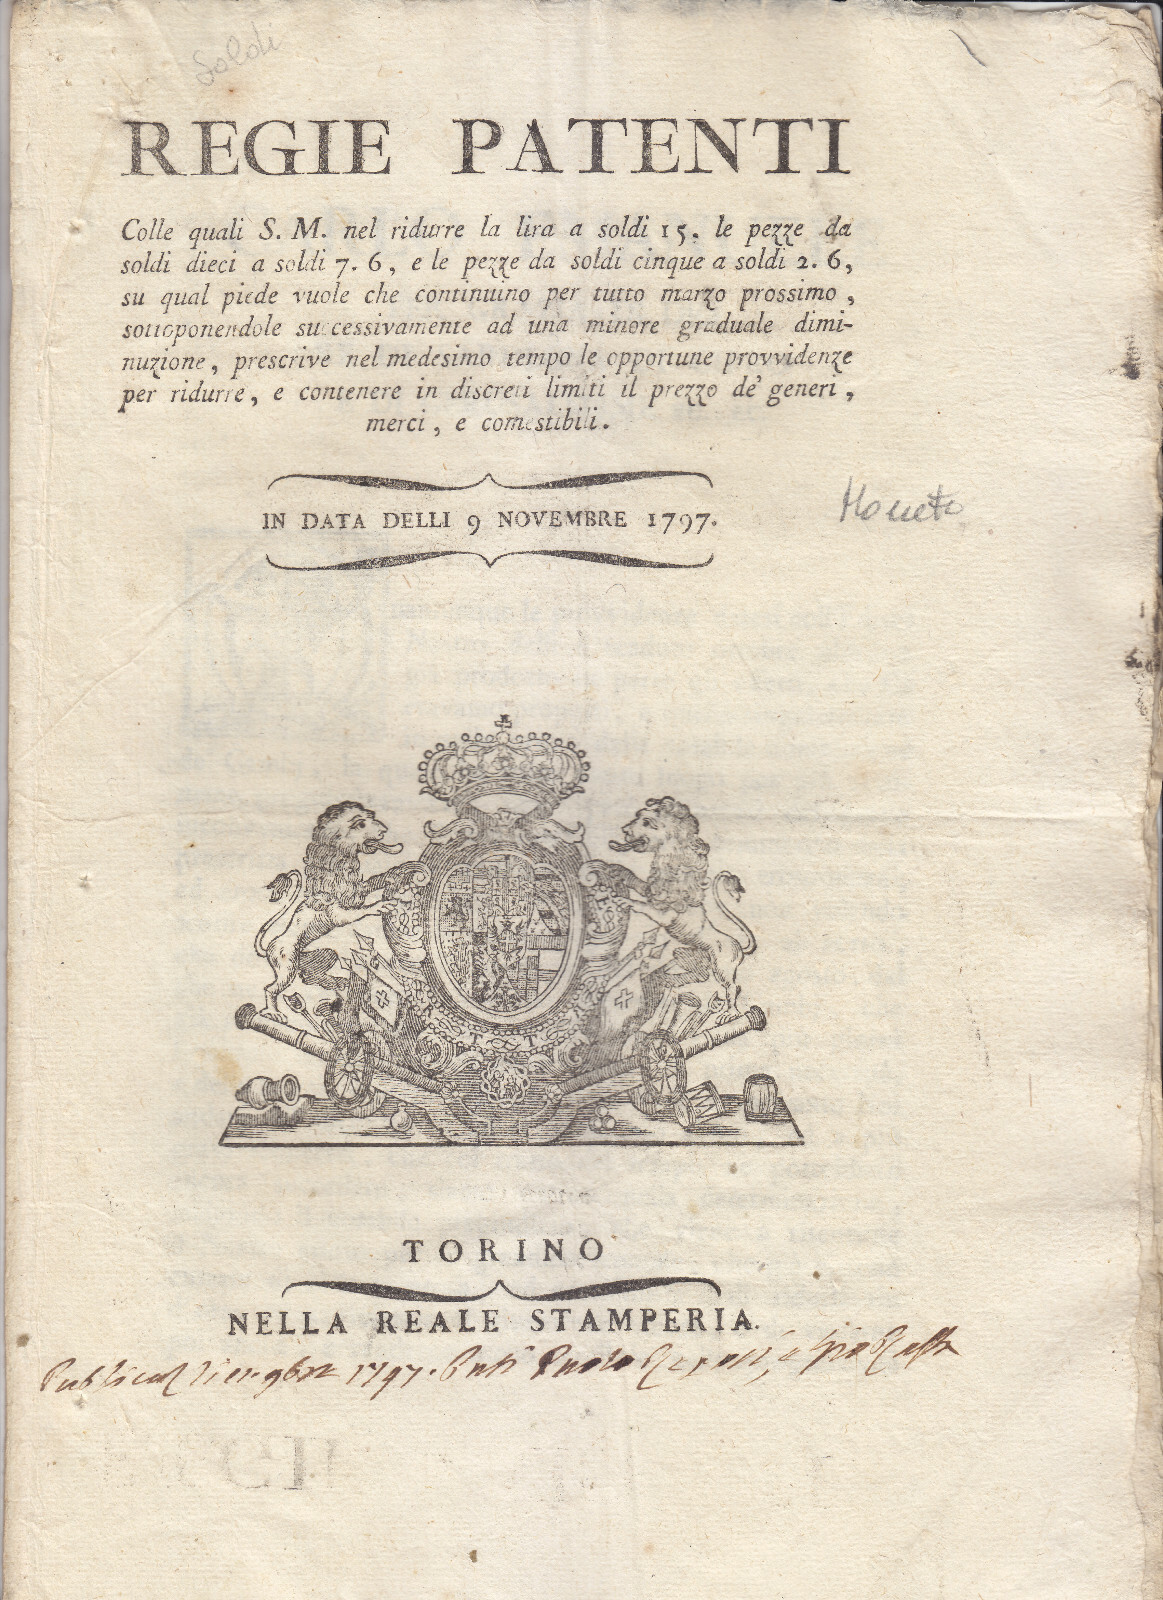 Soldi
REGIE PATENTI
Colle quali S. M. nel ridurre la lira a soldi 15. le pezze da
soldi dieci a soldi 7. 6, e le pezze da soldi cinque a soldi 2. 6,
su qual piede vuole che continuino per tutto marzo prossimo,
sottoponendole successivamente ad una minore graduale dimi-
nuzione, prescrive nel medesimo tempo le opportune provvidenze
per ridurre, e contenere in discreti limiti il prezzo de' generi,
merci, e comestibili.
IN DATA DELLI 9 NOVEMBRE 1797.
Monete
TORINO
NELLA REALE STAMPERIA.
1797.